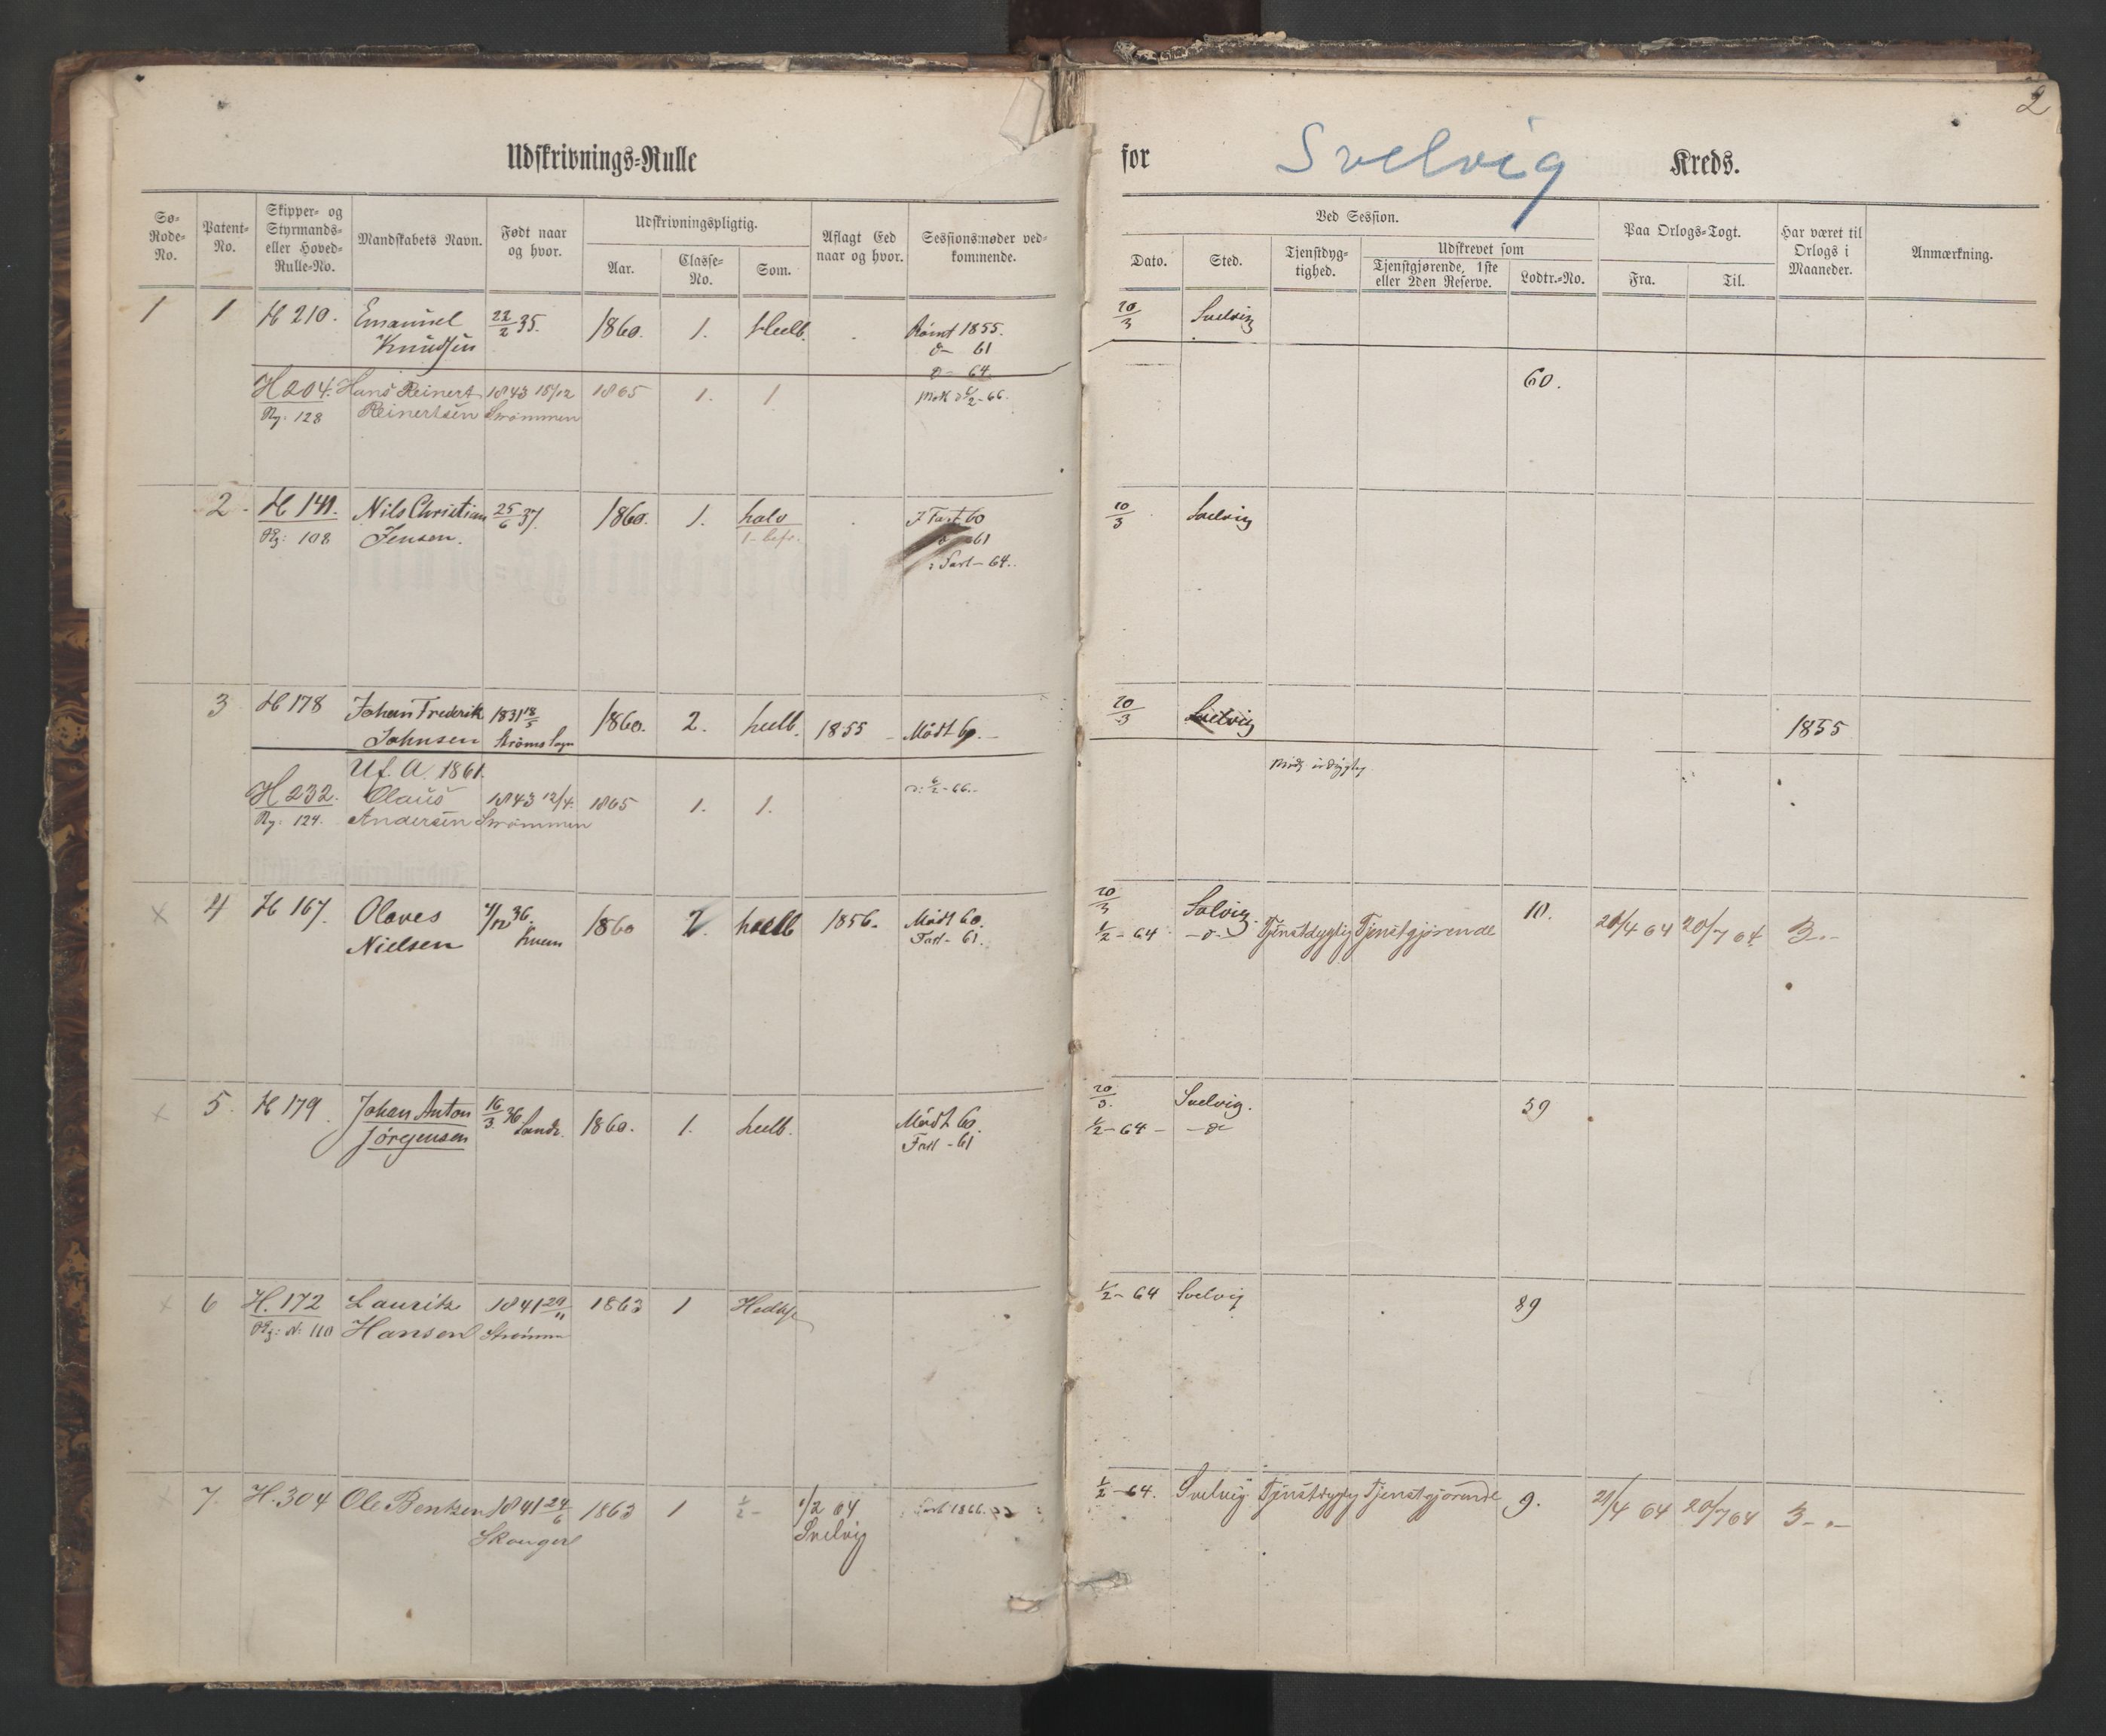 2
Udskrivnings-Rulle for Svelvig Kreds.
Sø-Rode-No.
Patent-No.
Skipper- og Styrmands- eller Hoved-Rulle-No.
Mandskabets Navn.
Født naar og hvor.
Udskrivningspligtig.
Aar.
Classe-No.
Som.
Aflagt Eed naar og hvor.
Sessionsmøder vedkommende.
Ved Session.
Dato.
Sted.
Tjenstdygtighed.
Udskrevet som
Tjenstgjørende, 1ste eller 2den Reserve.
Lodtr.-No.
Paa Orlogs-Togt.
Fra.
Til.
Har været til Orlogs i Maaneder.
Anmærkning.
1 1 H 210. Emanuel 22/2 35. 1860. 1. Rømt 1855. 20/3 Svelvig
Knudsen 61
64
H 204. Hans Reinert 1843 15/12 1865 1. 1 6/2-66. 60.
Rg. 128 Reinertsen Strømmen
2 H 141. Nils Christian 25/6 37. 1860. 1. halv 60 20/3 Svelvig
108 Jensen. 61
64.
3 H 178 Johan Frederik 1831 18/5 1860. 2. 1855 Mødt 60. 20/3 Svelvig 1855
Johnsen
Uf. A. 1861.
H 232. Olaus 1843 12/4. 1865 1. 1. 6/2-66.
Rg: 124. Andersen Strømmen
4 H 167. Olaves 36. 1860 2. 1856. Mødt 60. 20/3 Svelvig. 10.
Nielsen 61. 1/2-64 Tjenstdygtig Tjenstgjørende 20/4 64 20/7 64 3.-
5. H 179. Johan Anton 16/3 36 1860. 1. Mødt 60. 20/3. Svelvig. 39
Jørgensen 61 1/2-64
6 H. 172 Lauritz 1841 29/11 1863 1 1/2-64 Svelvig 89
110 Hansen Strømm
7. H. 304 Ole Bentsen 1841 24/6 1863 1 1/2 64 1866. 1/2-64. Svelvig Tjenstdygtig Tjenstgjørende 9. 21/4 64 20/7 64 3-
Skouger Svelvig